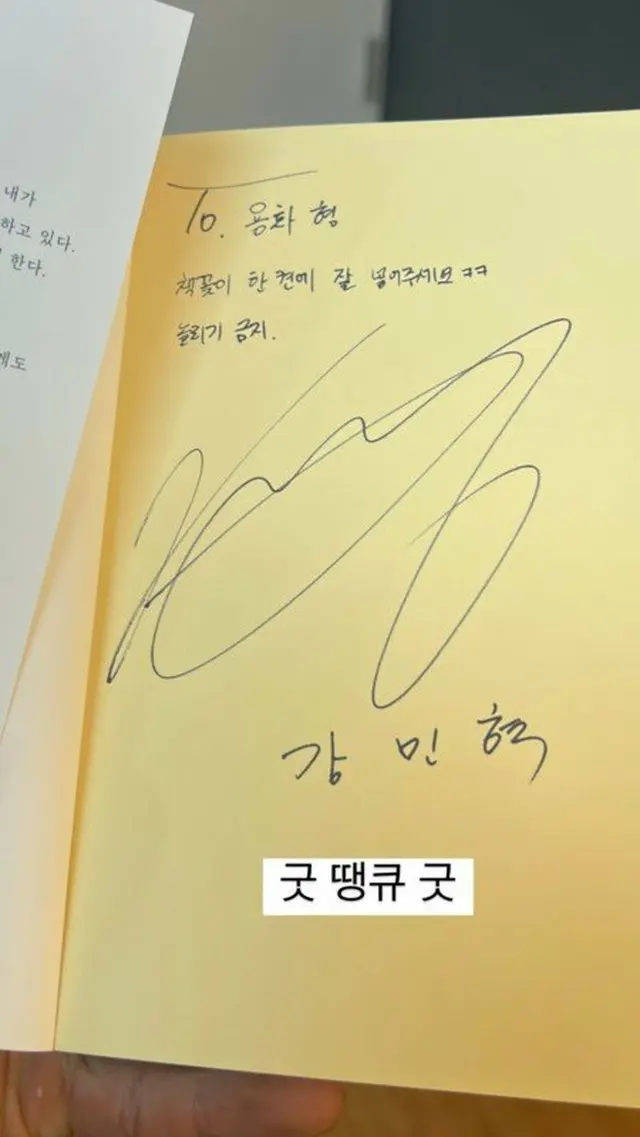 내가
하고 있다.
한다.
에도
To. 용화 형
책꽂이 한 켠에 잘 넣어주세요 ㅋㅋ
놀리기 금지.
강 민 혁
굿 땡큐 굿